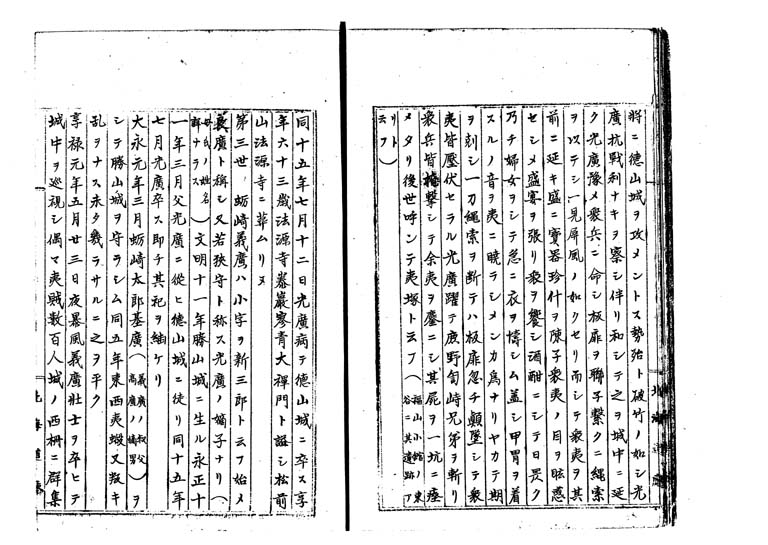 將ニ德山城ヲ攻メントスル勢殆ト破竹ノ如シ光
廣抗戰利ナキヲ察シ伴リ和シテ之ヲ城中ニ延
ク光廣豫メ衆兵ニ命シ板扉ヲ聯子繫クニ繩索
ヲ以テシ一見屏風ノ如クセリ而シテ衆夷ヲ其
前ニ延キ盛ニ寶器珍什ヲ陳子衆夷ノ目ヲ眩惑
セシメ盛宴ヲ張リ衆ヲ饗シ酒酣ニシテ日昃ク
乃チ婦女ヲシテ急ニ衣ヲ擣シム蓋シ甲冑ヲ着
スルノ音ヲ夷ニ曉ラシメンカ爲ナリヤカテ期
ヲ刻シ一刀繩索ヲ断テハ板扉忽チ顚墜シテ衆
夷皆壓伏セラル光廣躍テ庻野訇峙兄弟ヲ斬リ
衆兵皆撃シテ余夷ヲ鏖ニシ其屍ヲ一坑ニ瘞
メタリ後世呼ンテ夷塚ト云フ（福山小館ノ東谷ニ其遺跡ア
リト云フ）
同十五年七月十二日光廣病テ德山城ニ卒ス享
年六十三歲法源寺巖廖青大禪門ト諡シ松前
山法源寺ニ葬ムリヌ
第三世蛎崎義廣ハ小字ヲ新三郎ト云フ始メ
襄廣ト稱シ又若狹守ト称ス光廣ノ嫡子ナリ（
母氏ノ姓名詳ナラス）文明十一年勝山城ニ生ル永正十
一年三月父光廣ニ從ヒ德山城ニ徒リ同十五年
七月光廣卒ス即チ其祀ヲ紬ケリ
大永元年三月蛎崎太郎基廣（義廣ノ叔父高廣ノ嫡男）ヲ
シテ勝山城ヲ守ラシム同五年東西夷蝦又叛キ
乱ヲナス未タ幾ラサルニ之ヲ平ク
享祿元年五月廿三日夜暴風義廣壯士ヲ卒ヒテ
城中ヲ巡視シ偶マ夷賊数百人城ノ西柵ニ群集